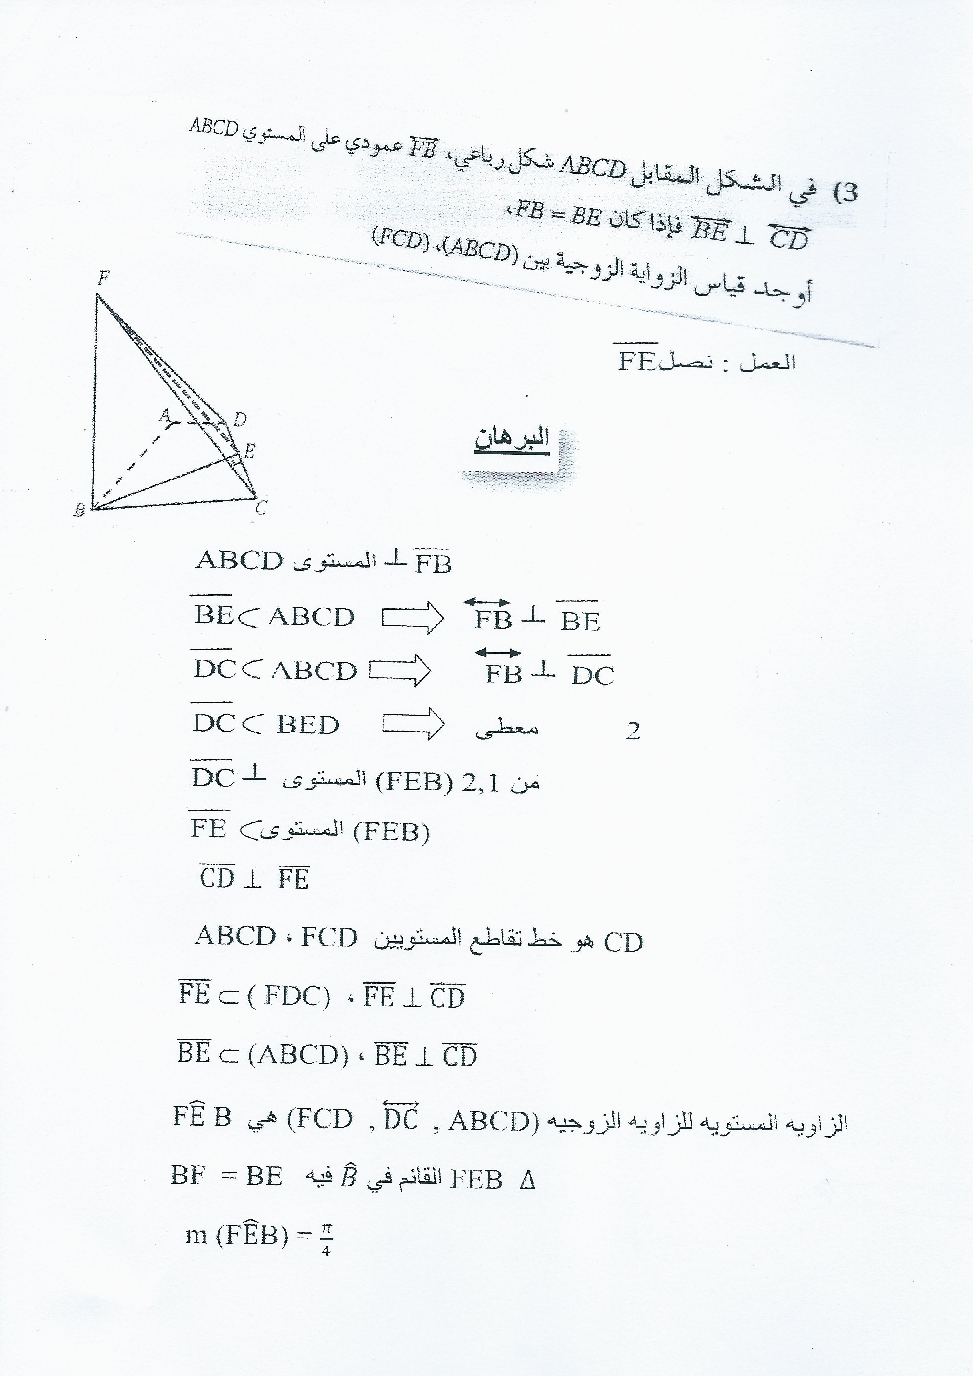 3) في الشكل المقابل ABCD شكل رباعي، FB عمودي على المستوي ABCD
BE ⊥ CD فإذا كان FB = BE،
أوجد قياس الزواية الزوجية بين (ABCD)، (FCD)
العمل : نصل FE
البرهان
F
A
D
E
B
C
FB ⊥ المستوى ABCD
BE ⊂ ABCD ⇒ FB ⊥ BE
DC ⊂ ABCD ⇒ FB ⊥ DC
DC ⊂ BED ⇒ معطى 2
DC ⊥ المستوى (FEB) من 2,1
FE ⊂ المستوى (FEB)
CD ⊥ FE
CD هو خط تقاطع المستويين ABCD ، FCD
FE ⊂ ( FDC) ، FE ⊥ CD
BE ⊂ (ABCD) ، BE ⊥ CD
الزاويه المستويه للزاويه الزوجيه (FCD , DC , ABCD) هي FÊB
Δ FEB القائم في B̂ فيه BF = BE
m (FÊB) = π/4